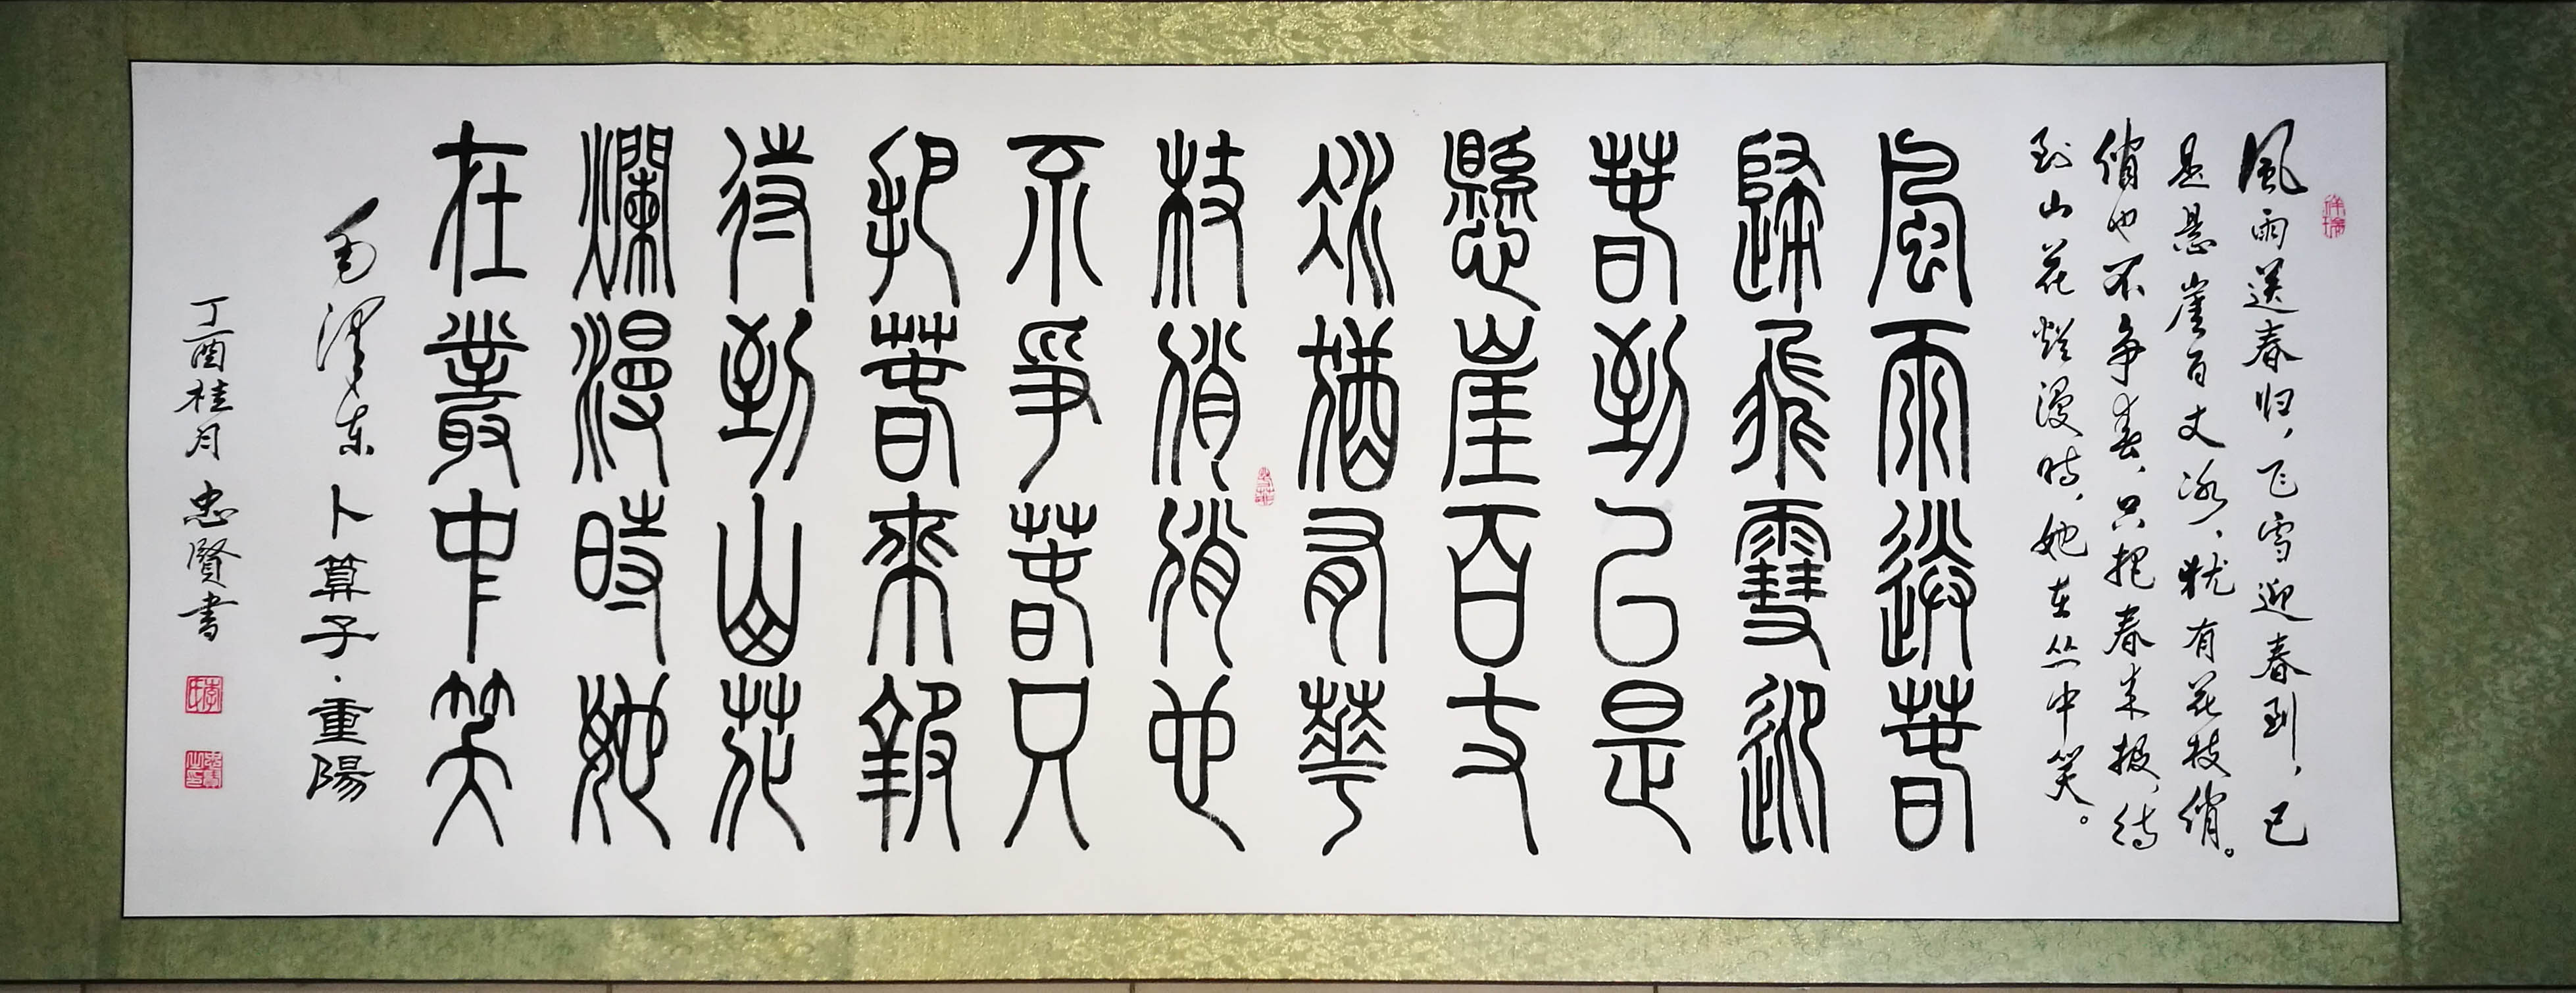 風雨送春归，飞雪迎春到，已
是悬崖百丈冰，犹有花枝俏。
俏也不争春，只把春来报，待
到山花烂漫时，她在丛中笑。
風雨送春
歸飛雪迎
春到已是
懸崖百丈
冰猶有華
枝俏俏也
不爭春只
把春來報
待到山花
爛漫時她
在叢中笑
毛澤东 卜算子·重陽
丁酉桂月 忠賢書